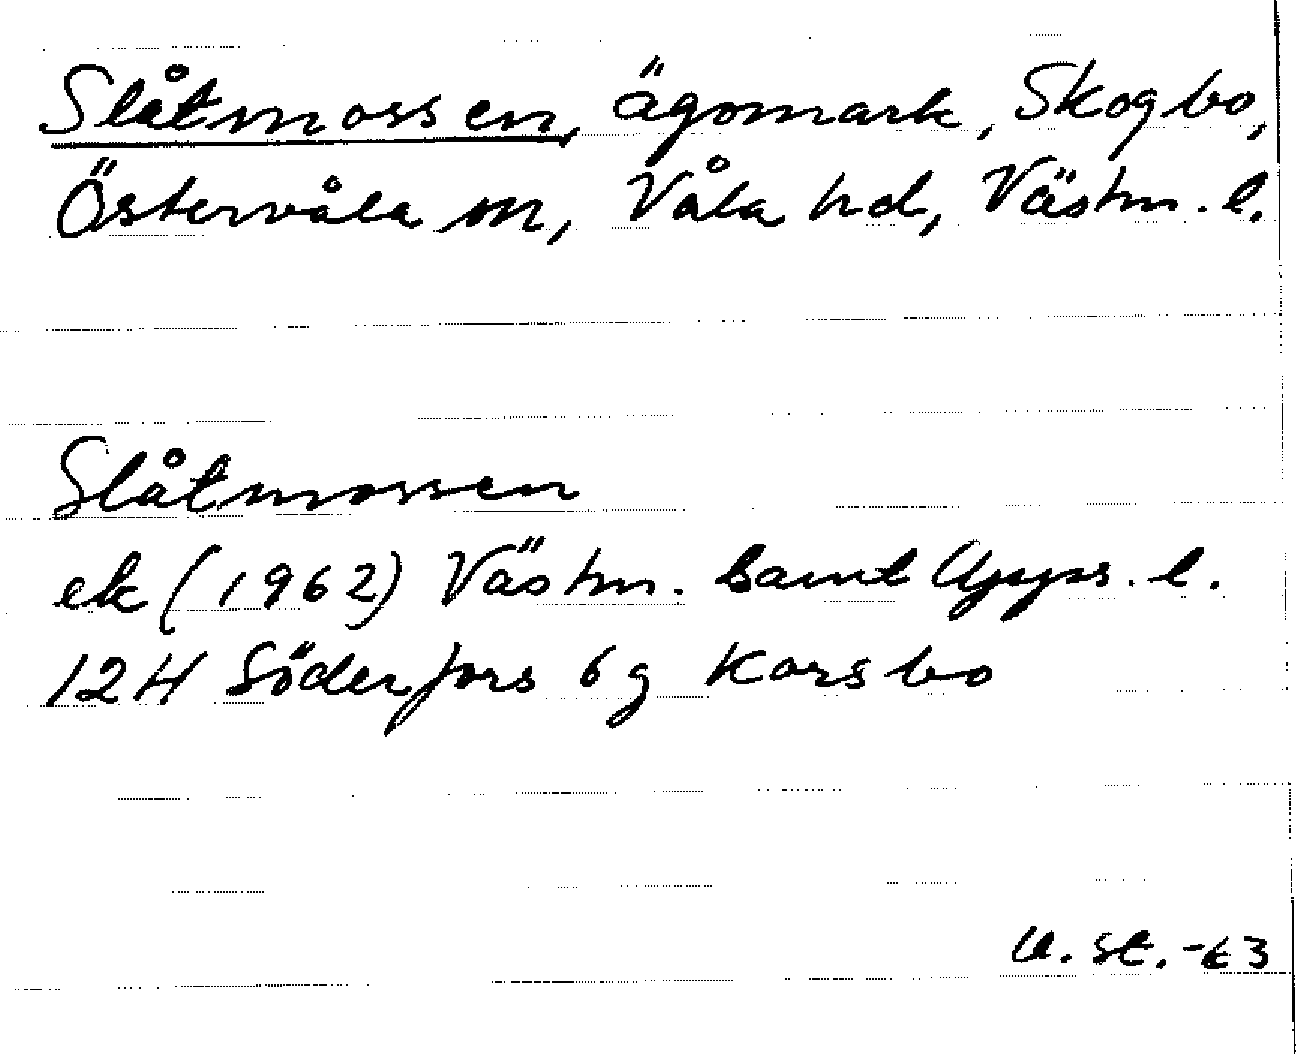 Slåtmossen, ägomark, Skogbo,
Östervåla sn, Våla hd, Västm. l.
Slåtmossen
ek (1962) Västm. samt Upps. l.
12H Söderfors 6g Korsbo
U. St. -63